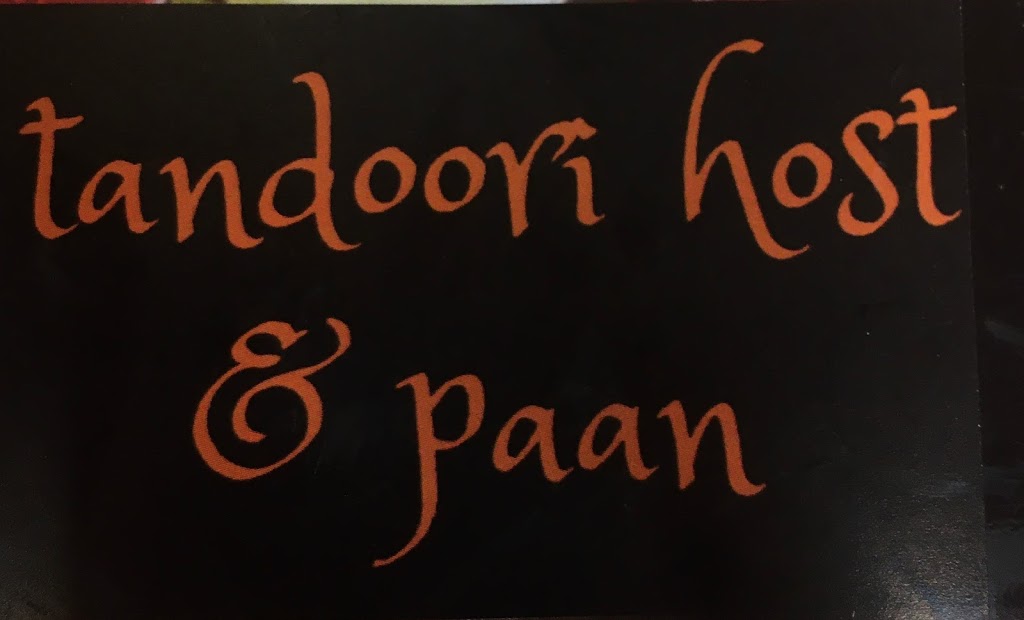 tandoori host
& paan